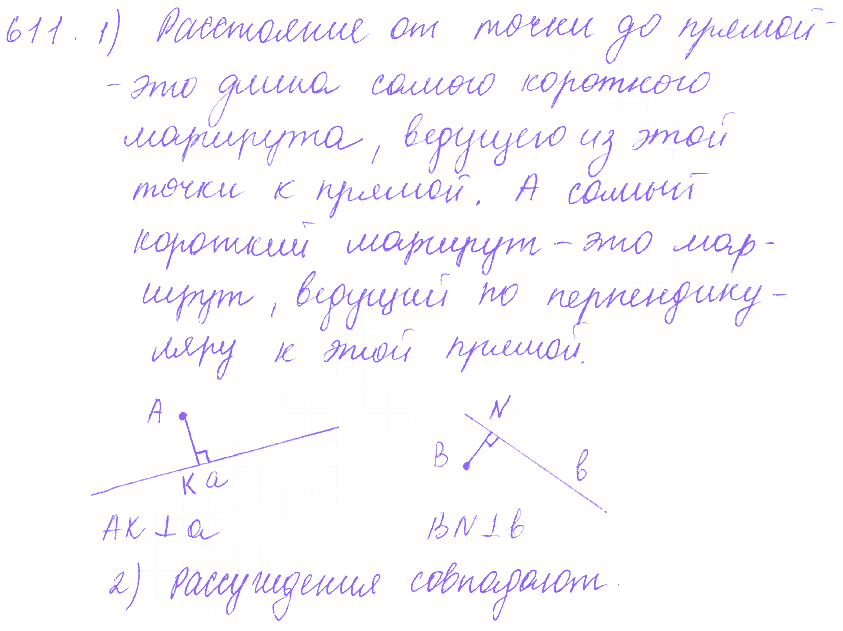 611. 1) Расстояние от точки до прямой-
- это длина самого короткого
маршрута, ведущего из этой
точки к прямой. А самый
короткий маршрут - это мар-
шрут, ведущий по перпендику-
ляру к этой прямой.
A N
B в
K a
AK ⊥ a BN ⊥ в
2) Рассуждения совпадают.